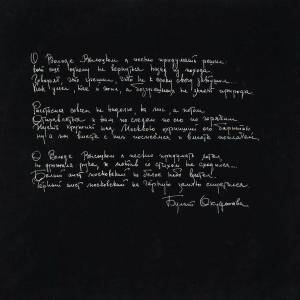 О Володе Высоцком я песню придумать решил:
вот ещё одному не вернуться назад из похода.
Говорят, что грешил, что не к сроку свечу затушил...
Как умел, так и жил, а безгрешных не знает природа.
Расстались совсем не надолго, на миг, а потом
Отправляться и нам по следам по его по горячим.
Пусть кружит над Москвою охрипший его баритон,
ну а мы вместе с ним посмеёмся и вместе поплачем.
О Володе Высоцком я песню придумать хотел,
но дрожала рука, и мотив со стихом не сходился...
Белый аист московский на белое небо взлетел,
Чёрный аист московский на чёрную землю спустился.
Булат Окуджава